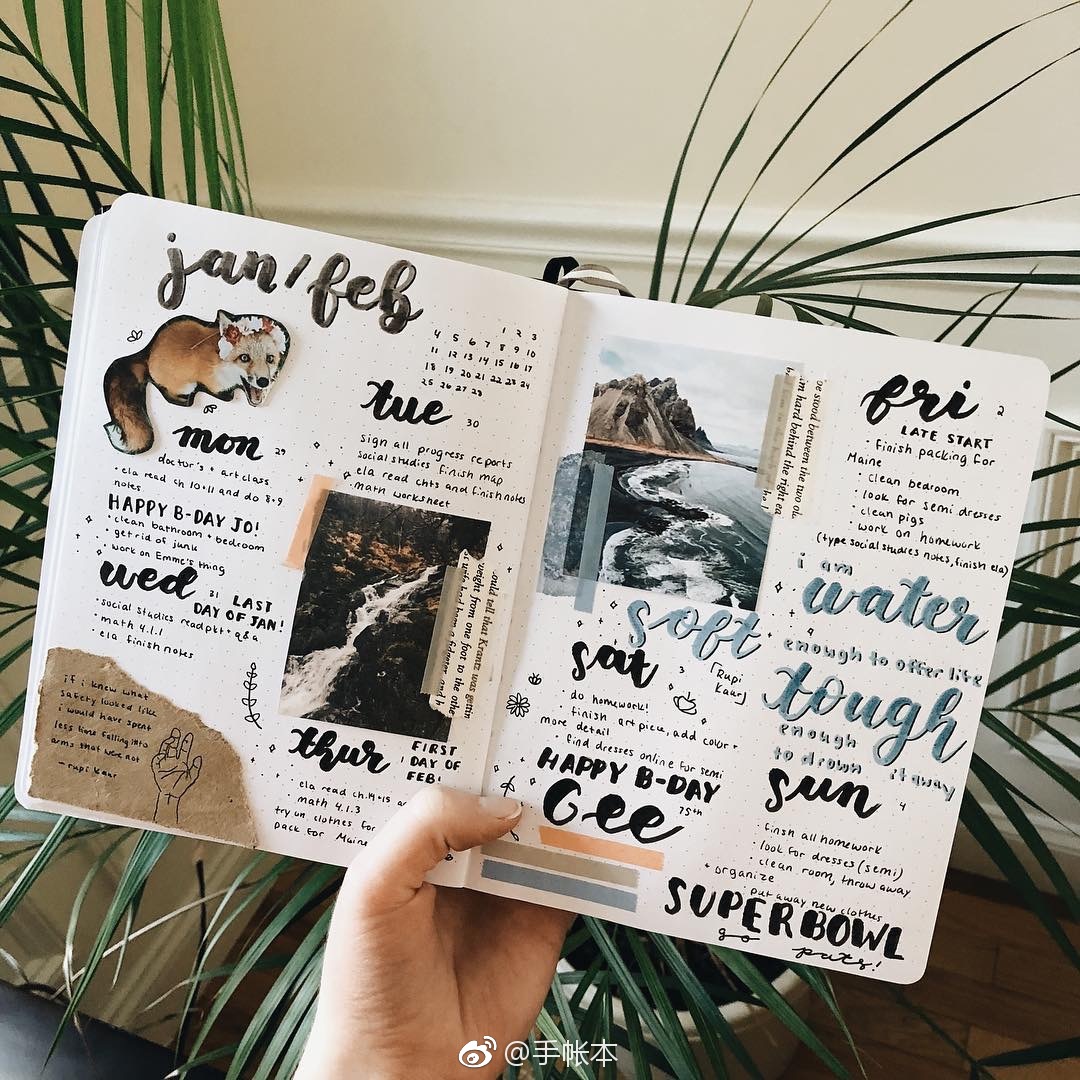 jan/feb
1 2 3
4 5 6 7 8 9 10
11 12 13 14 15 16 17
18 19 20 21 22 23 24
25 26 27 28
mon 29
doctor's + art class
• ela read ch 10+11 and do 8+9
notes
HAPPY B-DAY JO!
• clean bathroom + bedroom
• get rid of junk
• work on Emme's thing
tue 30
sign all progress reports
social studies finish map
• ela read chts and finish notes
• math worksheet
wed 31 LAST
DAY OF JAN!
• social studies readpkt + q&a
• math 4.1.1
• ela finish notes
if i knew what
safety looked like
i would have spent
less time falling into
arms that were not
- rupi kaur
ould tell that Krantz was gettin
weight from one foot to the othe
thur FIRST
DAY OF
FEB!
• ela read ch.14+15
• math 4.1.3
try on clothes for
pack for Maine
be stood between the two old
him hard behind the right ea
fri 2
LATE START
• finish packing for
Maine
• clean bedroom
• look for semi dresses
• clean pigs
• work on homework
(type social studies notes, finish ela)
i am
water
soft
enough to offer life
[Rupi
Kaur]
tough
enough
to drown it away
sat 3
do homework!
• finish art piece, add color +
more detail
• find dresses online for semi
HAPPY B-DAY
Gee 75th
sun 4
finsh all homework
• look for dresses (semi)
• clean room, throw away
+ organize
• put away new clothes
SUPERBOWL
go pats!
@手帐本